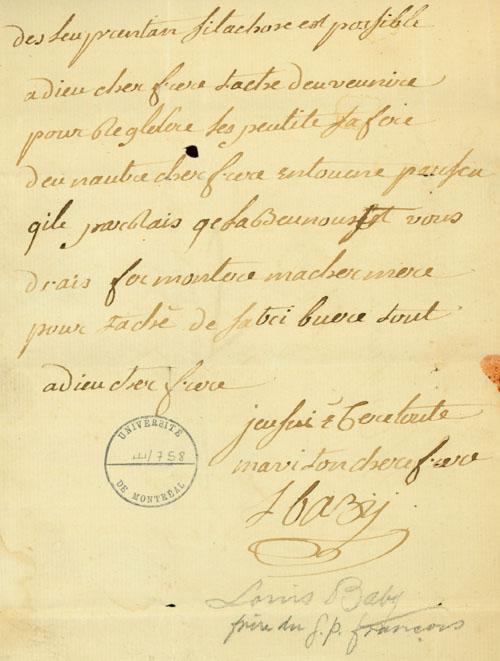 des leu prentan si lachose est possible
adieu cher frere tache deuvennire
pour RegleSere ses peutite safere
deu nautre cher frere entoucne parseu
qile parblais qe labeu nous et vous
drais for montere machermere
pour taché de satri buere tout
adieu cher frere
jeu sui é Ceretoute
mavi ton chere frere
L baby
UNIVERSITÉ
III/758
DE MONTRÉAL
Louis Baby
frère du g.p. françois